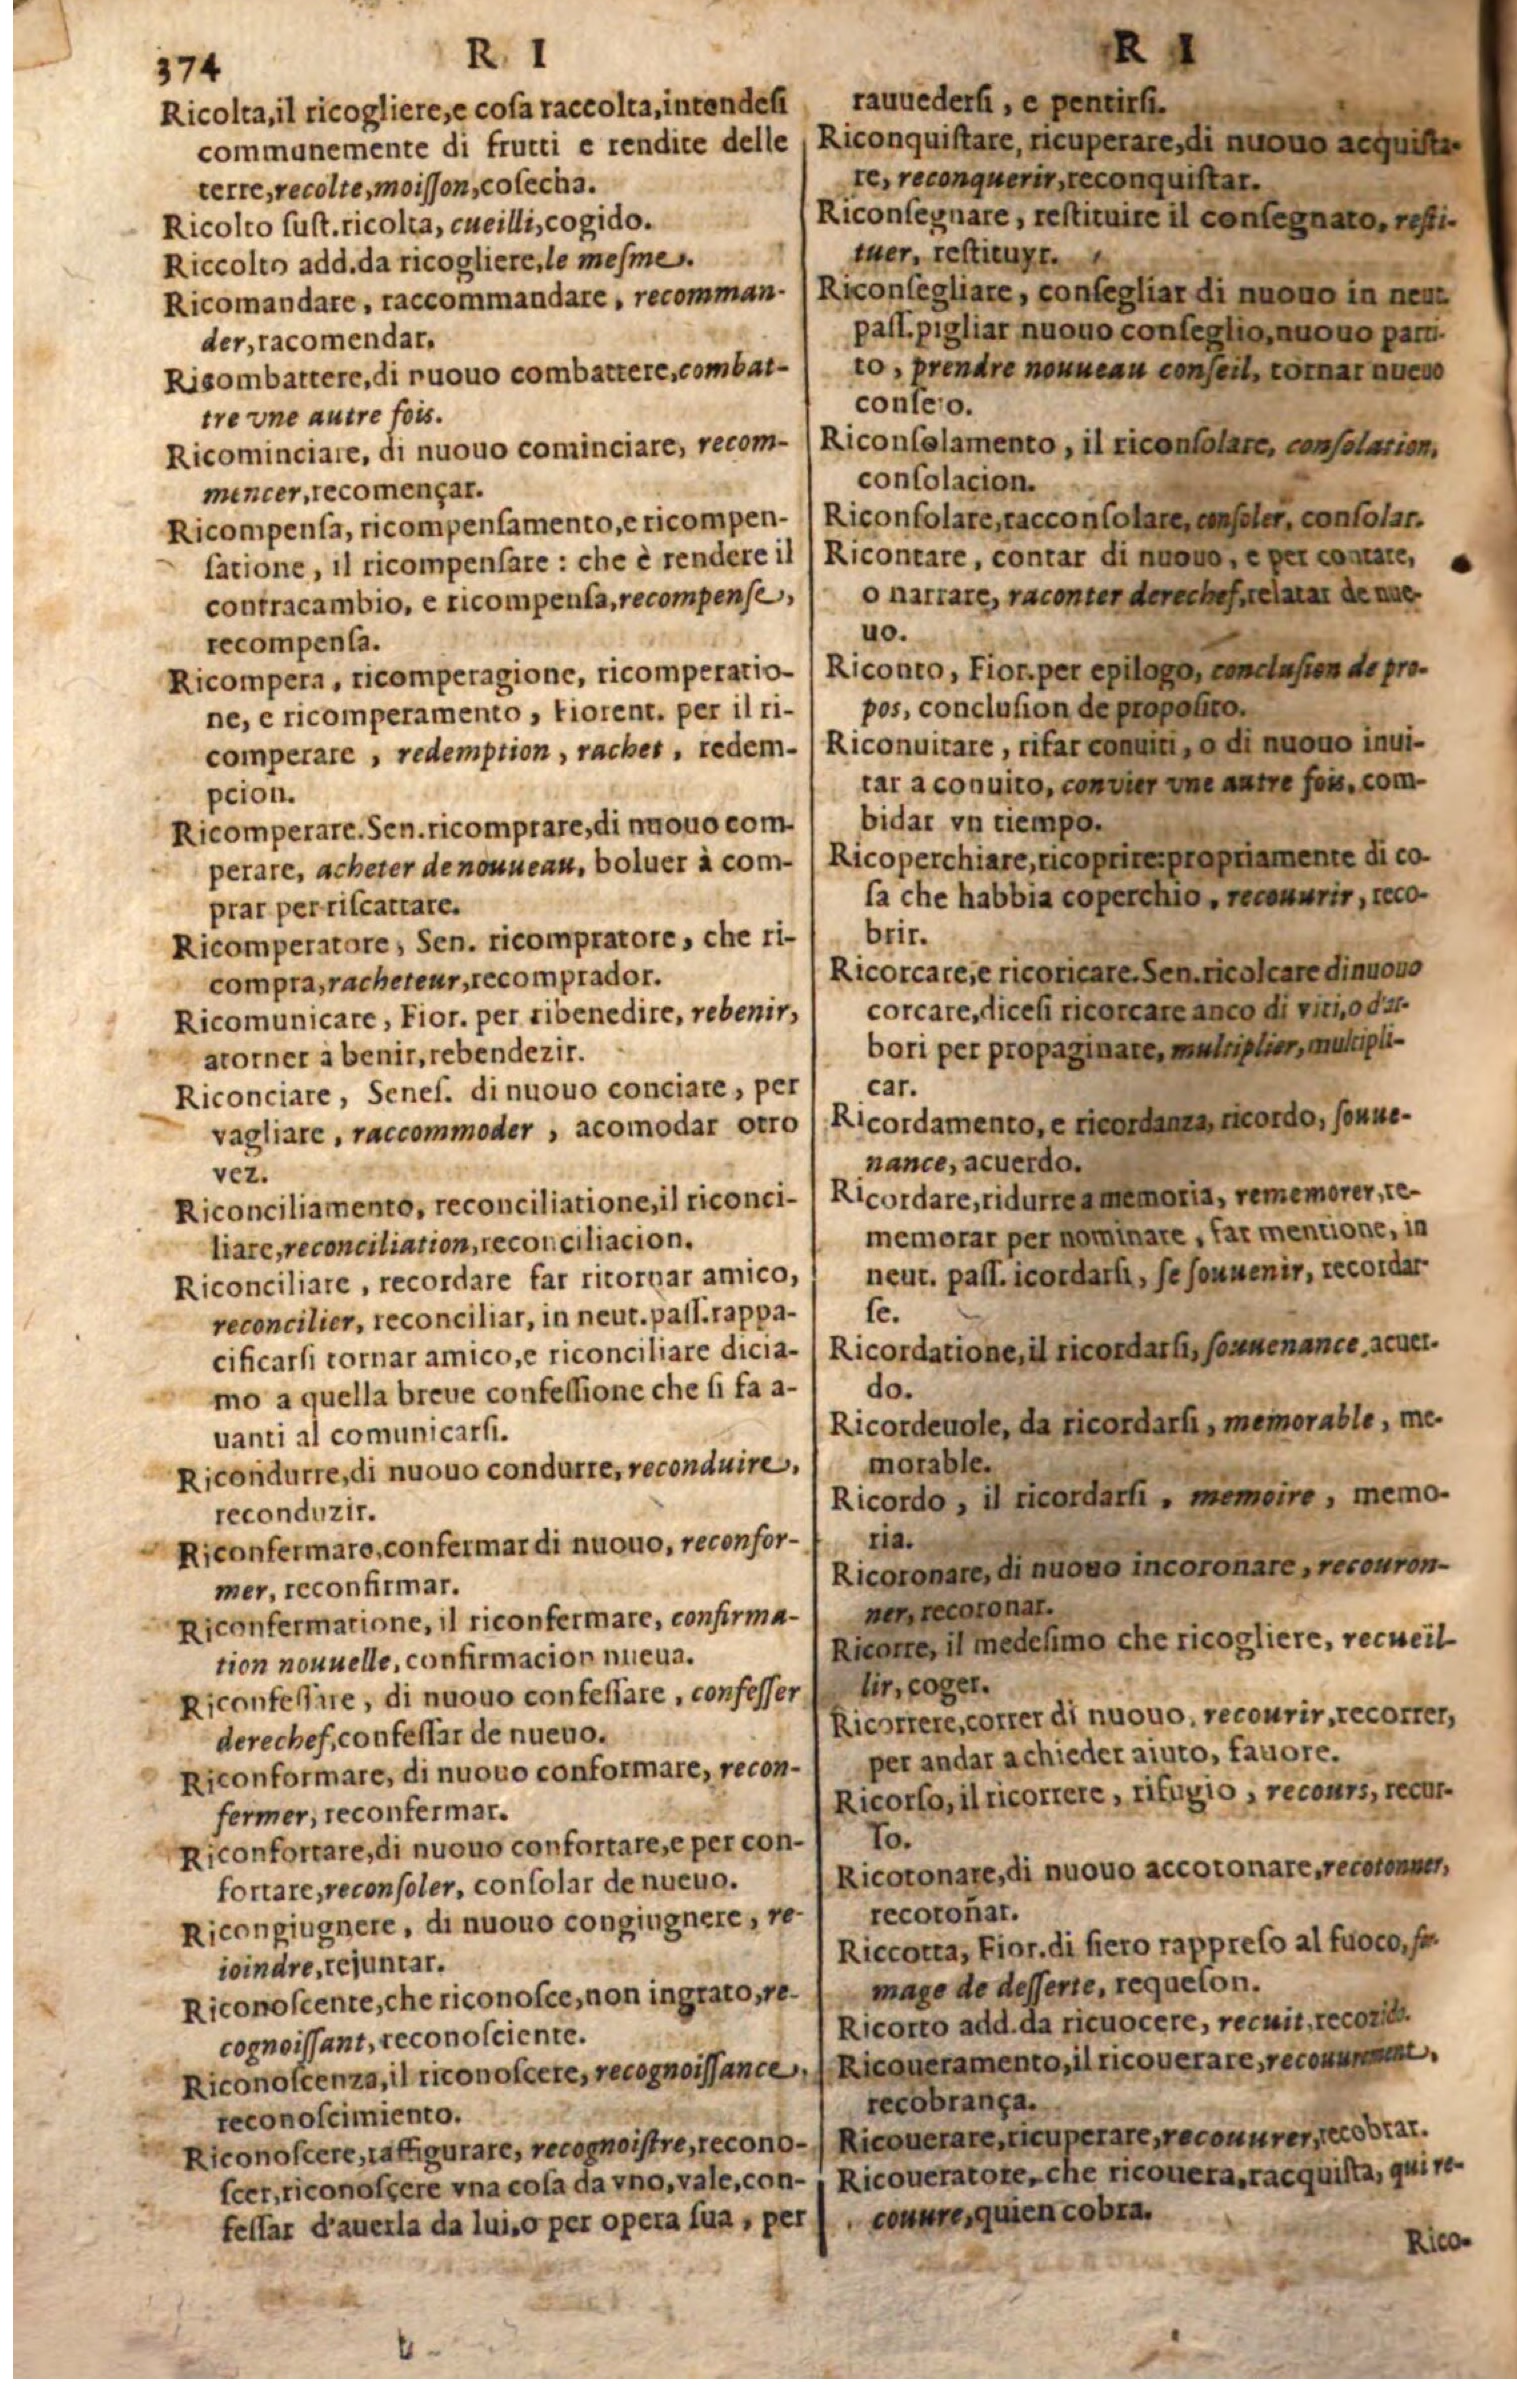 374
R I
Ricolta,il ricogliere,e coſa raccolta,intendeſi
communemente di frutti e rendite delle
terre,recolte,moiſſon,coſecha.
Ricolto ſuſt.ricolta, cueilli,cogido.
Riccolto add.da ricogliere,le meſme.
Ricomandare, raccommandare, recomman-
der,racomendar.
Ricombattere,di nuouo combattere,combat-
tre vne autre fois.
Ricominciare, di nuouo cominciare, recom-
mencer,recomençar.
Ricompenſa, ricompenſamento,e ricompen-
ſatione, il ricompenſare : che è rendere il
contracambio, e ricompenſa,recompenſe,
recompenſa.
Ricompera, ricomperagione, ricomperatio-
ne, e ricomperamento, Fiorent. per il ri-
comperare, redemption, rachet, redem-
pcion.
Ricomperare.Sen.ricomprare,di nuouo com-
perare, acheter de nouueau, boluer à com-
prar per riſcattare.
Ricomperatore, Sen. ricompratore, che ri-
compra,racheteur,recomprador.
Ricomunicare, Fior. per ribenedire, rebenir,
atorner a benir,rebendezir.
Riconciare, Seneſ. di nuouo conciare, per
vagliare, raccommoder, acomodar otro
vez.
Riconciliamento, reconciliatione,il riconci-
liare,reconciliation,reconciliacion.
Riconciliare, recordare far ritornar amico,
reconcilier, reconciliar, in neut.paſſ.rappa-
cificarſi tornar amico,e riconciliare dicia-
mo a quella breue confeſſione che ſi fa a-
uanti al comunicarſi.
Ricondurre,di nuouo condurre, reconduire,
reconduzir.
Riconfermare,confermar di nuouo, reconfor-
mer, reconfirmar.
Riconfermatione, il riconfermare, confirma-
tion nouuelle, confirmacion nueua.
Riconfeſſare, di nuouo confeſſare, confeſſer
derechef,confeſſar de nueuo.
Riconformare, di nuouo conformare, recon-
fermer, reconfermar.
Riconfortare,di nuouo confortare,e per con-
fortare,reconſoler, conſolar de nueuo.
Ricongiugnere, di nuouo congiugnere, re-
ioindre,rejuntar.
Riconoſcente,che riconoſce,non ingrato,re-
cognoiſſant, reconoſciente.
Riconoſcenza,il riconoſcere, recognoiſſance,
reconoſcimiento.
Riconoſcere,raffigurare, recognoiſtre,recono-
ſcer,riconoſçere vna coſa da vno,vale,con-
feſſar d'auerla da lui,o per opera ſua, per
R I
rauuederſi, e pentirſi.
Riconquiſtare, ricuperare,di nuouo acquiſta-
re, reconquerir,reconquiſtar.
Riconſegnare, reſtituire il conſegnato, reſti-
tuer, reſtituyr.
Riconſegliare, conſegliar di nuouo in neut.
paſſ.pigliar nuouo conſeglio,nuouo parti-
to, prendre nouueau conſeil, tornar nueuo
conſe o.
Riconſolamento, il riconſolare, conſolation,
conſolacion.
Riconſolare,racconſolare, conſoler, conſolar.
Ricontare, contar di nuouo, e per contare,
o narrare, raconter derechef,relatar de nue-
uo.
Riconto, Fior.per epilogo, concluſion de pro-
pos, concluſion de propoſito.
Riconuitare, rifar conuiti, o di nuouo inui-
tar a conuito, convier vne autre fois, com-
bidar vn tiempo.
Ricoperchiare,ricoprire:propriamente di co-
ſa che habbia coperchio, recouurir, reco-
brir.
Ricorcare,e ricoricare.Sen.ricolcare di nuouo
corcare,diceſi ricorcare anco di viti,o d'ar-
bori per propaginare, multiplier, multipli-
car.
Ricordamento, e ricordanza, ricordo, ſouue-
nance, acuerdo.
Ricordare,ridurre a memoria, rememorer,re-
memorar per nominare, far mentione, in
neut. paſſ. icordarſi, ſe ſouuenir, recordar-
ſe.
Ricordatione,il ricordarſi, ſouuenance,acuer-
do.
Ricordeuole, da ricordarſi, memorable, me-
morable.
Ricordo, il ricordarſi, memoire, memo-
ria.
Ricoronare, di nuouo incoronare, recouron-
ner, recoronar.
Ricorre, il medeſimo che ricogliere, recueil-
lir, coger.
Ricorrere,correr di nuouo, recourir,recorrer,
per andar a chieder aiuto, fauore.
Ricorſo, il ricorrere, rifugio, recours, recur-
ſo.
Ricotonare,di nuouo accotonare,recotonner,
recotoñar.
Riccotta, Fior.di ſiero rappreſo al fuoco, fo-
mage de deſſerte, requeſon.
Ricotto add.da ricuocere, recuit,
Ricoueramento,il ricouerare,recouurement,
recobrança.
Ricouerare,ricuperare,recouurer,recobrar.
Ricoueratore, che ricouera,racquiſta, qui re-
couure,quien cobra.
Rico-